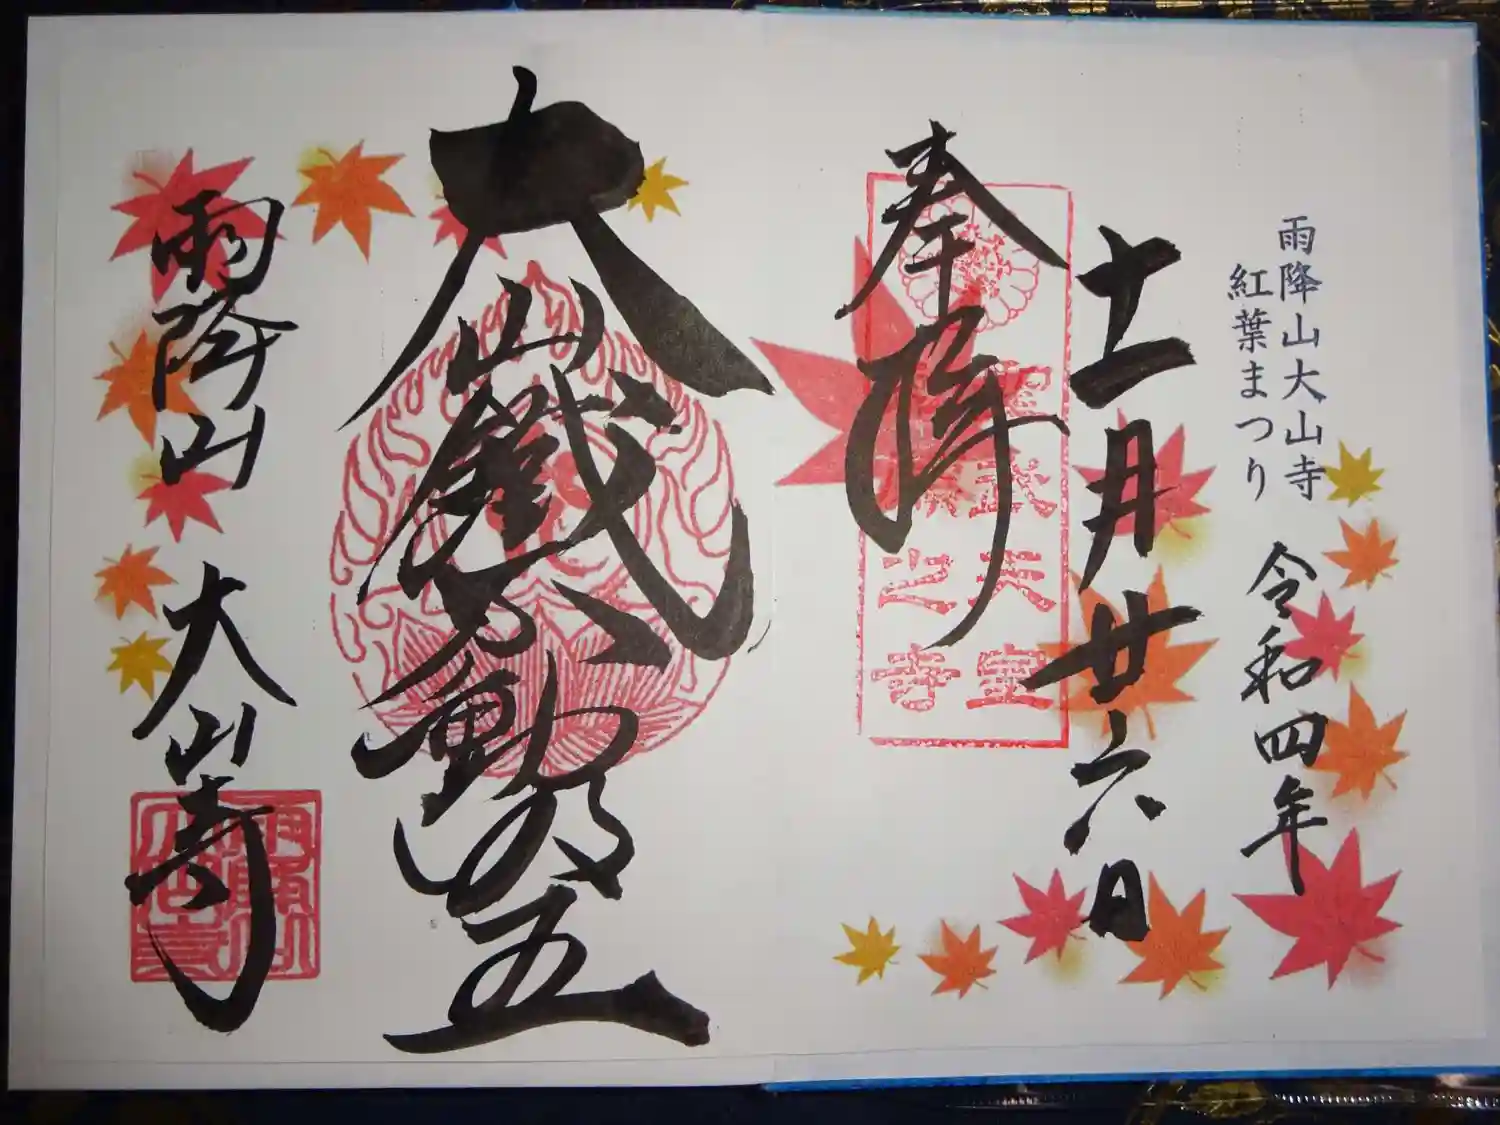 雨降山大山寺
紅葉まつり
令和四年
十一月廿六日
奉拝
聖武天皇
勅願之寺
大山鐵不動明王
雨降山
大山寺